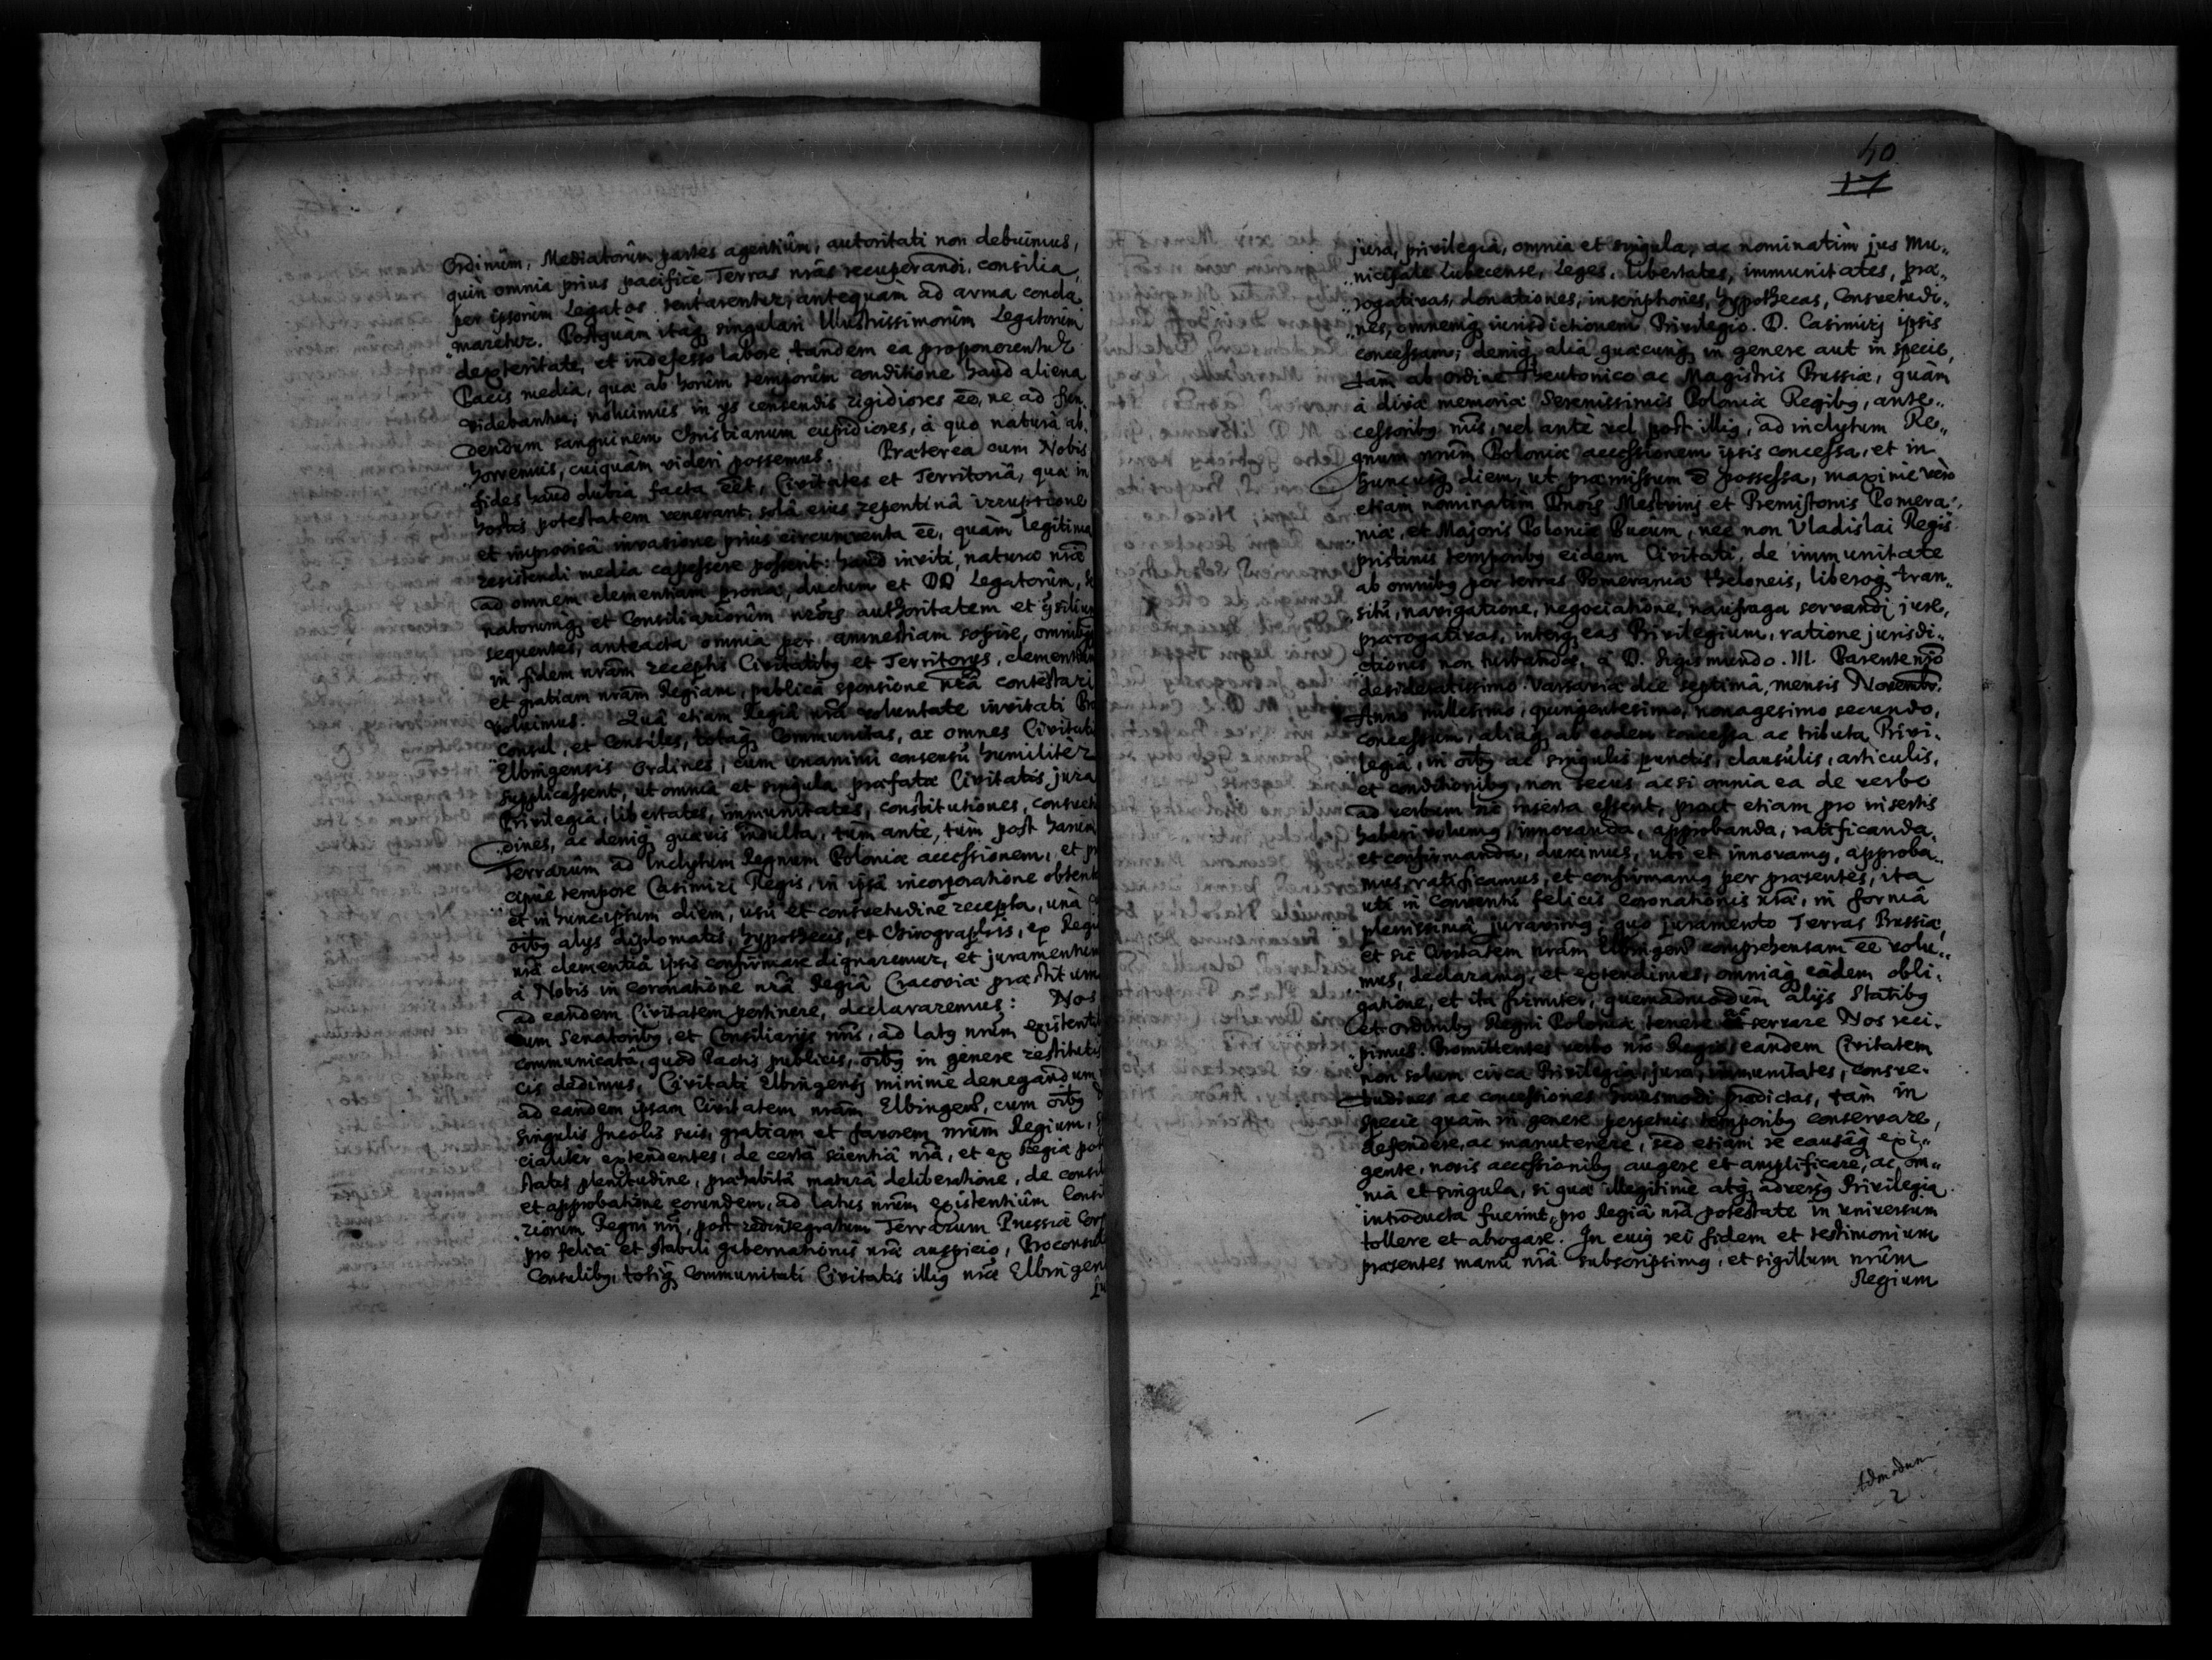 Ordinûm, Mediatorûm partes agentiûm, autoritati non debuimus,
quin omnia prius pacifice Terras nrâs recuperandi, consilia,
per ipsorûm Legatos tentarentur, antequàm ad arma concla„
„maretur. Postquam itaq; singulari Illustrissimorûm Legatorûm
dexteritate, et indefesso labore tandem ea proponerentur
Pacis media, quæ ab horûm temporûm conditione haud aliena
videbantur; noluimus in ÿs censendis rigidiores eē, ne ad fun„
dendum sanguinem Christianum cupidiores, à quo naturâ ab„
„horremus, cuiquàm videri possemus. Præterea cum Nobis
fides haud dubia facta eēt, Civitates et Territoriâ, quæ in
hostis potestatem venerant, solâ eius repentinâ irruptione
et improvisâ invasione prius circumventa eē, quàm legitima
resistendi media capessere possent: haud inviti, naturæ nrǣ
ad omnem clementiam pronæ, ductum et DD Legatorûm, Se
natorumq; et Consiliariorûm nrôrs authoritatem et
sequentes, anteacta omnia per amnestiam sopire, omnibq;
in fidem nrâm receptis Civitatibq et Territorÿs, clementiam
et gratiam nrâm Regiam, publicâ sponsione nrâ contestari
voluimus. Quâ etiam Regiâ nrâ voluntate invitati Pro
Consul, et Consûles, totaq; Communitas, ac omnes Civitatis
Elbingensis Ordines, cum unanimi consensû humiliter
supplicassent, ut omnia et singula præfatæ Civitatis jura
Privilegia, libertates, immunitates, constitutiones, consuetu
„dines, ac deniq; quævis indulta, tum ante, tûm post harûm
Terrarûm ad Inclytum Regnum Poloniæ accessionem, et præ
cipue tempore Casimiri Regis, in ipsâ incorporatione obtenta
et in huncipsum diem, usû et consuetudine recepta, unà cum
oībq alÿs diplomatis, hypothecis, et Chirographis, ex Regiâ
nrâ clementiâ ipsis confirmare dignaremur, et juramentum
à Nobis in coronatione nrâ Regiâ Cracoviæ præstitum
ad eandem Civitatem pertinere, declararemus: Nos
cum Senatoribq, et Consiliarÿs nrīs, ad latq nrûm existentibq
communicatâ, quod Pactis publicis, oībq in genere restitutis
cis dedimus, Civitati Elbingensj minime denegandum
ad eandem ipsam Civitatem nrâm Elbingens., cum oībq
singulis Incolis suis, gratiam et favorem nrûm Regium, spe
cialiter extendentes, de certâ scientiâ nrâ, et ex Regiæ pote
statis plenitudine, præhabitâ maturâ deliberatione, de consilio
et approbatione eorundem, ad latus nrûm existentiûm Consilia
„riorum Regni nrī, post redintegratum Terrarum Prussiæ Corpus
pro felici et stabili gubernationis nrǣ auspicio, Proconsuli
Consulibq, totiq; Communitati Civitatis illiq nrǣ Elbingens
ju
40
17
jura, privilegia, omnia et singula, ac nominatìm jus Mu„
„nicipale Lubecense, Leges, libertates, immunitates, præ„
„rogativas, donationes, inscriptiones, hypothecas, Consvetudi„
„nes, omnemq; iurisdictionem Privilegio D. Casimirj ipsis
concessam; deniq; alia quæcunq; in genere aut in specie,
tàm ab Ordine Theutonico ac Magistris Prussiæ, quàm
à divæ memoriæ Serenissimis Poloniæ Regibq, ante„
cessoribq nrīs, vel ante vel post illiq, ad inclytum Re„
gnum nrûm Poloniæ accessionem ipsis concessa, et in
huncusq; diem, ut præmissum ē possessa, maxime verò
etiam nominatìm Ducis Mestvinj et Premislonis Pomera„
„niæ, et Majoris Poloniæ Ducum, nec non Vladislai Regis
pristinis temporibq eidem Civitati, de immunitate
ab omnibq per terras Pomeraniæ theloneis, liberoq; tran„
„sitû, navigatione, negociatione, naufraga servandj jure,
prærogativas, interq; eas Privilegium, ratione jurisdi„
ctionis non turbandæ, à D. Sigismundo III. Parente nrō
desideratissimo Varsaviæ die septimâ, mensis Novembr.
Anno millesimo, quingentesimo, nonagesimo secundo,
concessum, aliaq; ab eodem concessa ac tributa Privi„
legia, in oībq ac singulis punctis, clausûlis, articulis,
et conditionibq, non secus acsi omnia ea de verbo
ad verbum hic inserta essent, prout etiam pro insertis
haberi volumq, innovanda, approbanda, ratificanda,
et confirmanda, duximus, uti et innovamq, approba„
mus, ratificamus, et confirmamq per præsentes, ita
uti in Conventû felicis Coronationis nrǣ, in formâ
plenissimâ juravimq, quo juramento Terras Prussiæ,
et sic Civitatem nrâm Elbingens. comprehensam eē volu„
„mus, declaramq, et extendimus, omniaq; eâdem obli„
gatione, et ita firmiter, quemadmodûm alÿs Statibq
et ordinibq Regni Poloniæ tenere et servare Nos reci„
„pimus. Promittentes verbo nrō Regio, eandem Civitatem
non solum circa Privilegia, jura, immunitates, consue„
tudines ac concessiones huiusmodi prædictas, tàm in
specie quàm in genere perpetuis temporibq conservare,
defendere, ac manutenere, sed etiam re causâq; exi„
gente, novis accessionibq augere et amplificare, ac om„
nia et singula, si quæ illegitime atq; adversq Privilegia
introducta fuerint, pro Regiâ nrâ potestate in universum
tollere et abrogare. In cuiq rei fidem et testimonium
præsentes manû nrâ subscripsimq, et sigillum nrûm
Regium
Admodum
2